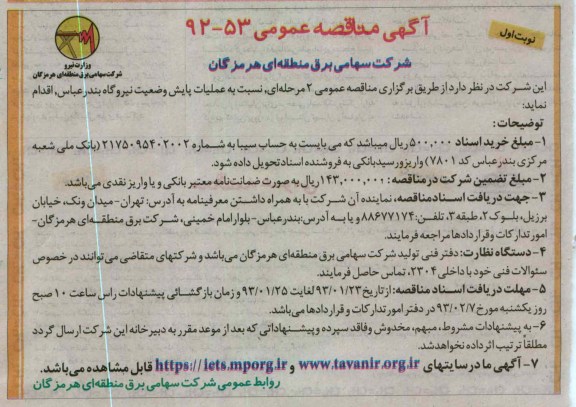 آگهی مناقصه عمومی ۵۳-۹۲
نوبت اول
وزارت نیرو
شرکت سهامی برق منطقه‌ای هرمزگان
شرکت سهامی برق منطقه‌ای هرمزگان
این شرکت در نظر دارد از طریق برگزاری مناقصه عمومی ۲ مرحله‌ای، نسبت به عملیات پایش وضعیت نیروگاه بندرعباس، اقدام
نماید:
توضیحات:
۱- مبلغ خرید اسناد ۵۰۰,۰۰۰ ریال میباشد که می بایست به حساب سیبا به شماره ۲۱۷۵۰۹۵۴۰۲۰۰۲ (بانک ملی شعبه
مرکزی بندرعباس کد ۷۸۰۱) واریز و رسید بانکی به فروشنده اسناد تحویل داده شود.
۲- مبلغ تضمین شرکت در مناقصه: ۱۴۳,۰۰۰,۰۰۰ ریال به صورت ضمانت‌نامه معتبر بانکی و یا واریز نقدی می‌باشد.
۳- جهت دریافت اسناد مناقصه، نماینده آن شرکت با به همراه داشتن معرفینامه به آدرس: تهران- میدان ونک، خیابان
برزیل، بلوک ۲، طبقه ۳، تلفن: ۸۸۶۷۷۱۷۴ و یا به آدرس: بندرعباس- بلوار امام خمینی، شرکت برق منطقه‌ای هرمزگان-
امور تدارکات و قراردادها مراجعه فرمایند.
۴- دستگاه نظارت: دفتر فنی تولید شرکت سهامی برق منطقه‌ای هرمزگان می‌باشد و شرکتهای متقاضی می‌توانند در خصوص
سئوالات فنی خود با داخلی ۲۳۰۴، تماس حاصل فرمایند.
۵- مهلت دریافت اسناد مناقصه: از تاریخ ۹۳/۰۱/۲۳ لغایت ۹۳/۰۱/۲۵ و زمان بازگشائی پیشنهادات راس ساعت ۱۰ صبح
روز یکشنبه مورخ ۹۳/۰۲/۷ در دفتر امور تدارکات و قراردادها می‌باشد.
۶- به پیشنهادات مشروط، مبهم، مخدوش و فاقد سپرده و پیشنهاداتی که بعد از موعد مقرر به دبیرخانه این شرکت ارسال گردد
مطلقا ترتیب اثر داده نخواهد شد.
۷- آگهی ما در سایتهای www.tavanir.org.ir و https://iets.mporg.ir قابل مشاهده می‌باشد.
روابط عمومی شرکت سهامی برق منطقه‌ای هرمزگان